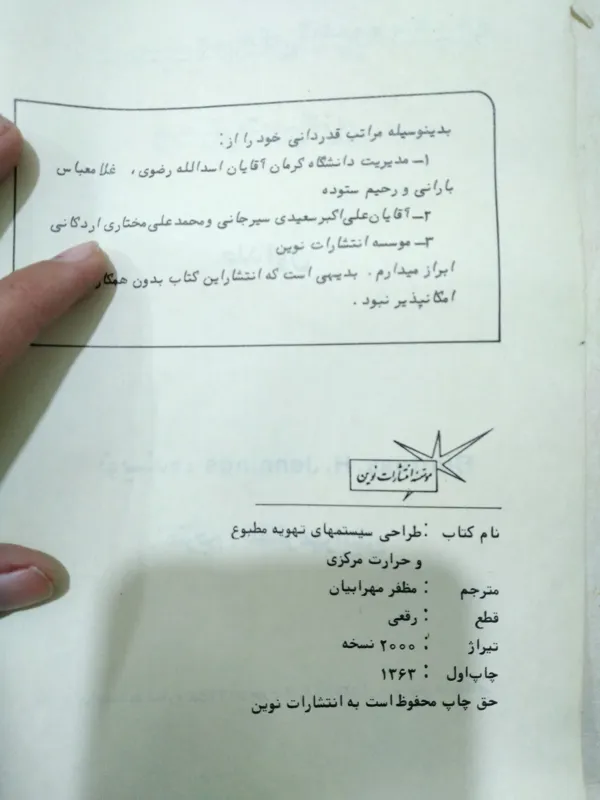 بدینوسیله مراتب قدردانی خود را از:
۱ـ مدیریت دانشگاه کرمان آقایان اسدالله رضوی، غلامعباس
بارانی و رحیم ستوده
۲ـ آقایان علی‌اکبر سعیدی سیرجانی و محمدعلی مختاری اردکانی
۳ـ موسسه انتشارات نوین
ابراز میدارم. بدیهی است که انتشار این کتاب بدون
امکانپذیر نبود.
موسسه انتشارات نوین
نام کتاب : طراحی سیستمهای تهویه مطبوع
و حرارت مرکزی
مترجم : مظفر مهرابیان
قطع : رقعی
تیراژ : ۲۰۰۰ نسخه
چاپ اول : ۱۳۶۳
حق چاپ محفوظ است به انتشارات نوین